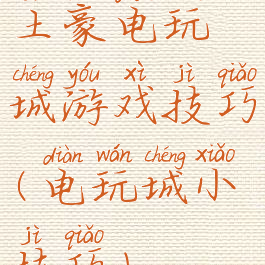 土豪电玩
chéng yóu xì jì qiǎo
城游戏技巧
diàn wán chéng xiǎo
(电玩城小
jì qiǎo
技巧)